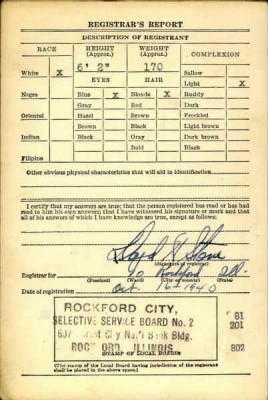 REGISTRAR'S REPORT
DESCRIPTION OF REGISTRANT
RACE HEIGHT (Approx.) WEIGHT (Approx.) COMPLEXION
6' 2" 170
White X Sallow
EYES HAIR Light X
Negro Blue X Blonde X Ruddy
Gray Red Dark
Oriental Hazel Brown Freckled
Brown Black Light brown
Indian Black Gray Dark brown
Bald Black
Filipino
Other obvious physical characteristics that will aid in identification
I certify that my answers are true; that the person registered has read or has had
read to him his own answers; that I have witnessed his signature or mark and that
all of his answers of which I have knowledge are true, except as follows:
Stone
(Signature of registrar)
Registrar for 90 Rockford Ill.
(Precinct) (Ward) (City or county) (State)
Date of registration Oct. 16th 1940
ROCKFORD CITY,
SELECTIVE SERVICE BOARD No. 2
Nat'l Bank Bldg.
ROCKFORD, ILLINOIS
61
201
802
STAMP OF LOCAL BOARD
(The stamp of the Local Board having jurisdiction of the registrant
shall be placed in the above space.)